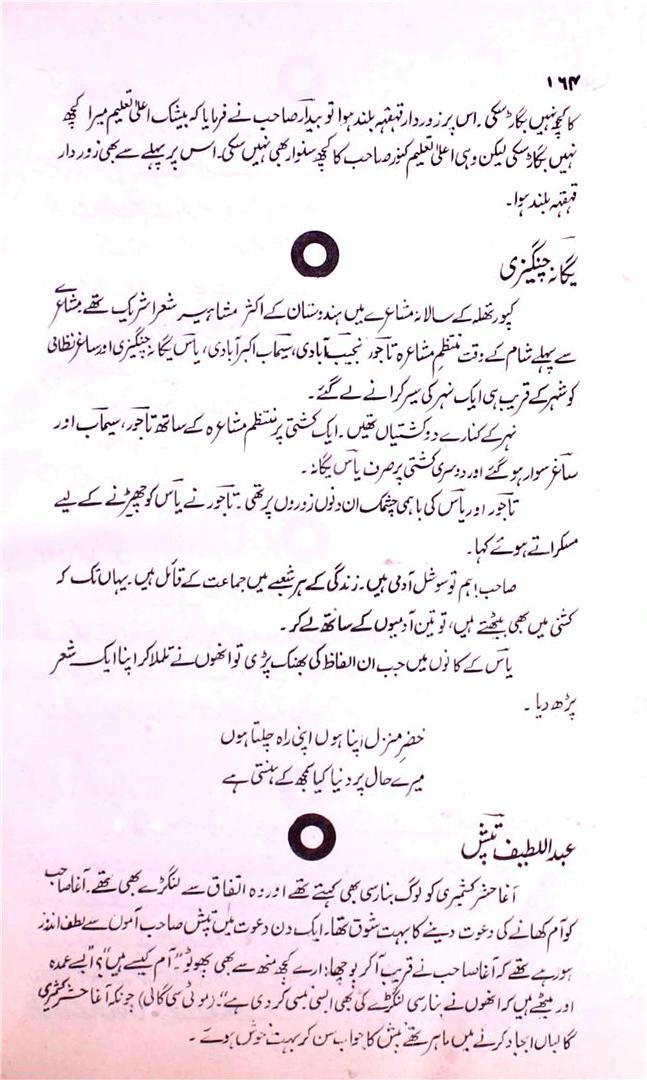 ۱۶۴
کا کچھ نہیں بگاڑ سکی۔ اس پر زور دار قہقہہ بلند ہوا تو بیدار صاحب نے فرمایا کہ بیشک اعلیٰ تعلیم میرا کچھ
نہیں بگاڑ سکی لیکن وہی اعلیٰ تعلیم کنور صاحب کا کچھ سنوار بھی نہیں سکی۔ اس پر پہلے سے بھی زور دار
قہقہہ بلند ہوا۔
یگانہ چنگیزی
کپور تھلہ کے سالانہ مشاعرے میں ہندوستان کے اکثر مشاہیر شعرا شریک تھے مشاعرے
سے پہلے شام کے وقت منتظمِ مشاعرہ تاجور نجیب آبادی، سیماب اکبر آبادی، یاس یگانہ چنگیزی اور ساغر نظامی
کو شہر کے قریب ہی ایک نہر کی سیر کرانے لے گئے۔
نہر کے کنارے دو کشتیاں تھیں۔ ایک کشتی پر منتظم مشاعرہ کے ساتھ تاجور، سیماب اور
ساغر سوار ہو گئے اور دوسری کشتی پر صرف یاس یگانہ۔
تاجور اور یاس کی باہمی چشمک ان دنوں زوروں پر تھی۔ تاجور نے یاس کو چھیڑنے کے لیے
مسکراتے ہوئے کہا۔
صاحب! ہم تو سوشل آدمی ہیں۔ زندگی کے ہر شعبے میں جماعت کے قائل ہیں۔ یہاں تک کہ
کشتی میں بھی بیٹھتے ہیں، تو تین آدمیوں کے ساتھ لے کر۔
یاس کے کانوں میں جب ان الفاظ کی بھنک پڑی تو انھوں نے تلملا کر اپنا ایک شعر
پڑھ دیا۔
خضرِ منزل اپنا ہوں اپنی راہ چلتا ہوں
میرے حال پر دنیا کیا سمجھ کے ہنستی ہے
عبداللطیف تپش
آغا حشر کشمیری کو لوگ بنارسی بھی کہتے تھے اور وہ اتفاق سے لنگڑے بھی تھے۔ آغا صاحب
کو آم کھانے کی دعوت دینے کا بہت شوق تھا۔ ایک دن دعوت میں تپش صاحب آموں سے لطف اندوز
ہو رہے تھے کہ آغا صاحب نے قریب آ کر پوچھا: ارے کچھ منھ سے بھی پھوٹو۔ "آم کیسے ہیں"؟ "ایسے عمدہ
اور میٹھے ہیں کہ انھوں نے بنارسی لنگڑے کی بھی ایسی تیسی کر دی ہے"۔ (موٹی سی گالی) چونکہ آغا حشر کشمیری
گالیاں ایجاد کرنے میں ماہر تھے تپش کا جواب سن کر بہت خوش ہوئے۔